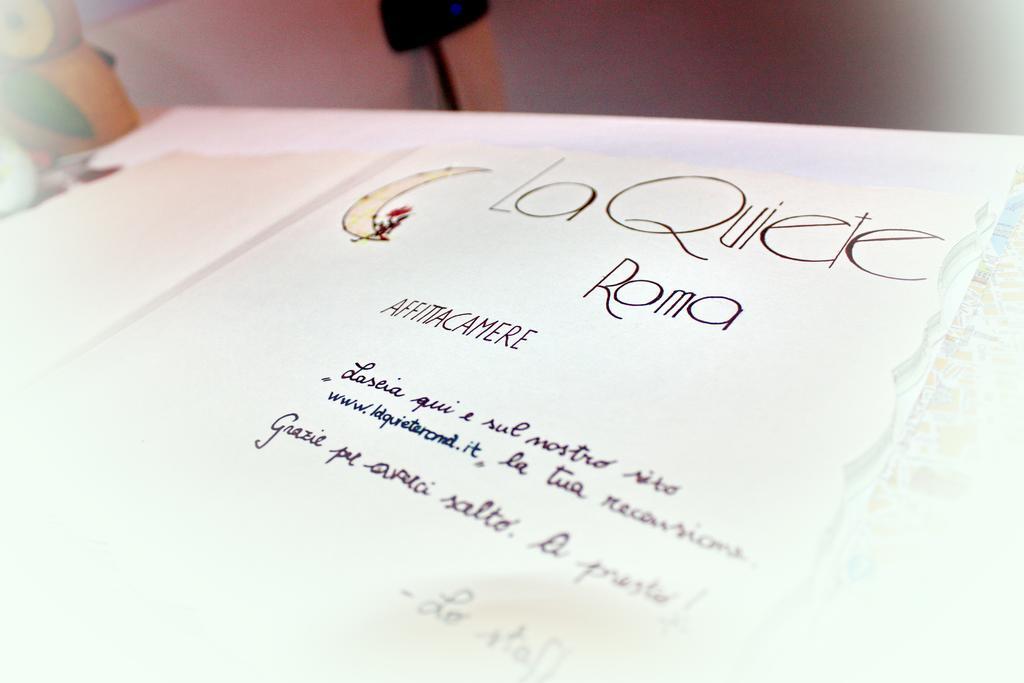 La Quiete
Roma
AFFITTACAMERE
Lascia qui e sul nostro sito
"www.laquieteroma.it" la tua recensione.
Grazie per averci scelto. A presto!
- Lo staff